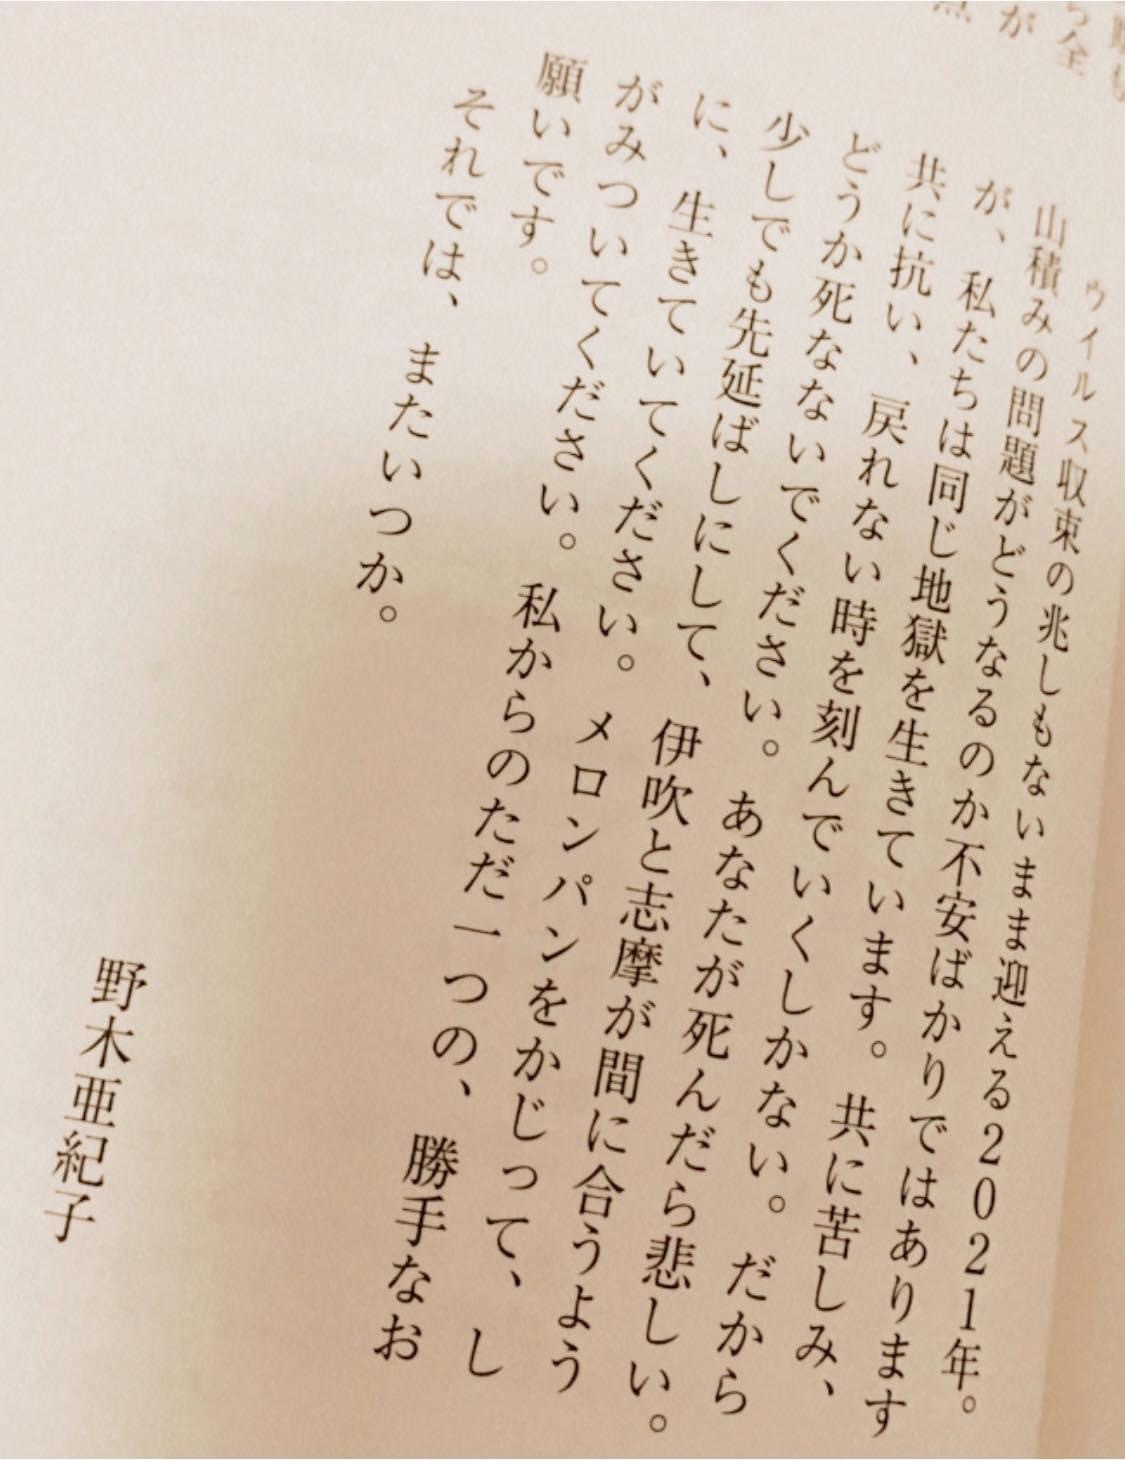 ウイルス収束の兆しもないまま迎える2021年。
山積みの問題がどうなるのか不安ばかりではあります
が、私たちは同じ地獄を生きています。共に苦しみ、
共に抗い、戻れない時を刻んでいくしかない。だから
どうか死なないでください。あなたが死んだら悲しい。
少しでも先延ばしにして、伊吹と志摩が間に合うよう
に、生きていてください。メロンパンをかじって、し
がみついてください。私からのただ一つの、勝手なお
願いです。
それでは、またいつか。
野木亜紀子